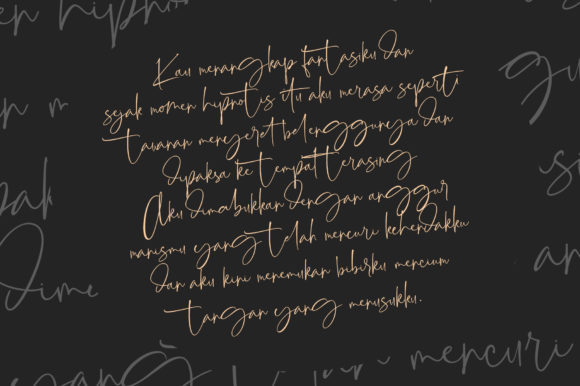 Kau menangkap fantasiku dan
sejak momen hipnotis itu aku merasa seperti
tawanan menyeret belenggunya dan
dipaksa ke tempat terasing
Aku dimabukkan dengan anggur
manismu yang telah mencuri kehendakku
dan aku kini menemukan bibirku mencium
tangan yang menusukku.
mencuri